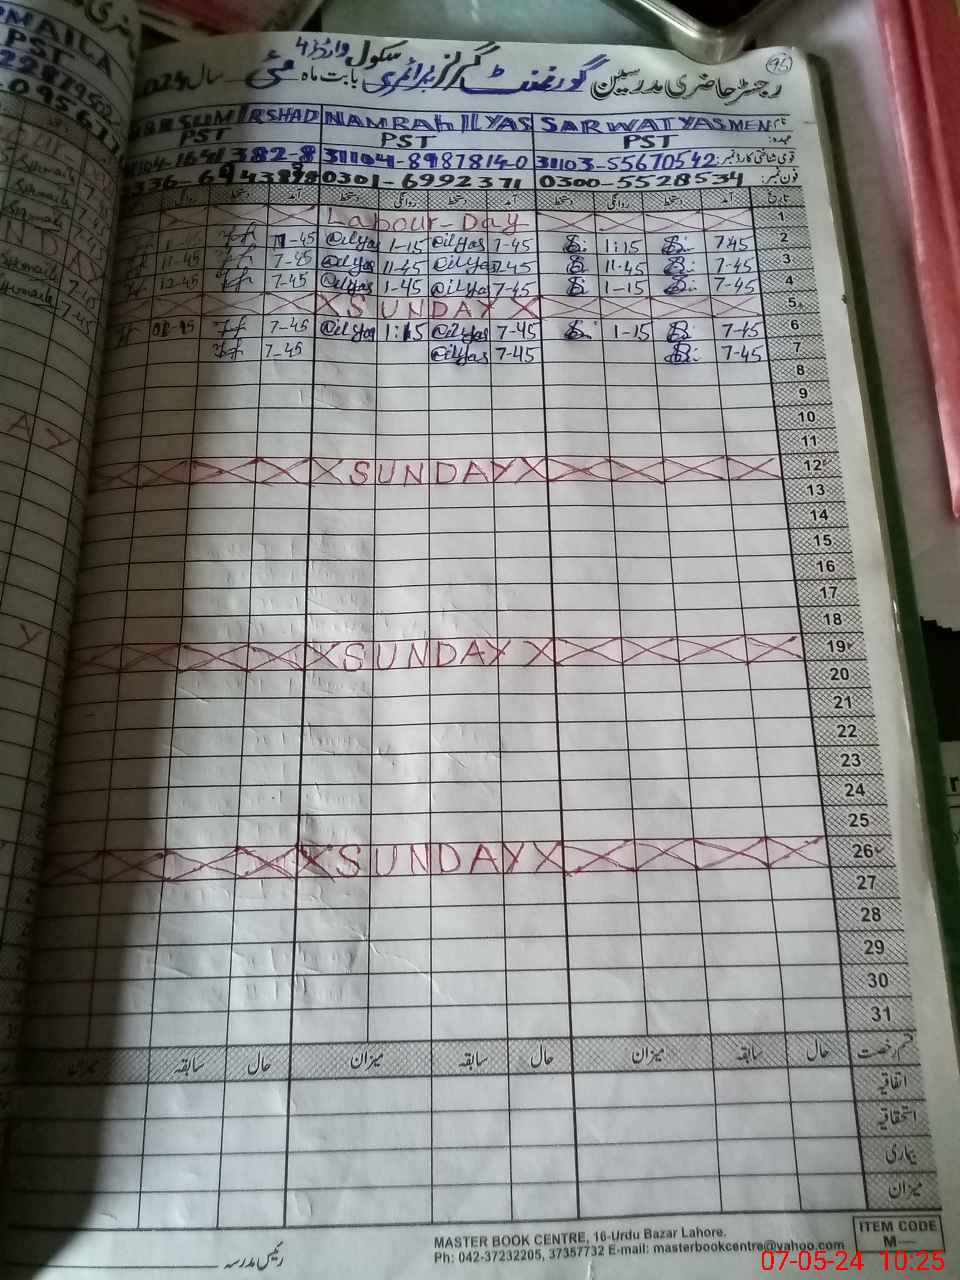 95
رجسٹر حاضری مدرسین گورنمنٹ گرلز پرائمری سکول وارڈ 4 بابت ماہ مئی سال 2024
IRSHAD NAMRAH ILYAS SARWAT YASMEN نام
PST PST PST عہدہ:
382-8 31104-8987814-0 31103-55670542 قومی شناختی کارڈ نمبر:
0301-6992371 0300-5528534 فون نمبر:
تاریخ آمد دستخط روانگی دستخط آمد دستخط روانگی دستخط آمد دستخط روانگی
Labour-Day 1
@ilyas 1-15 @ilyas 7-45 1:15 7:45 2
11-45 7-45 @ilyas 11-45 @ilyas 7-45 11.45 7-45 3
12-45 7-45 @ilyas 1-45 @ilyas 7-45 1-15 7-45 4
SUNDAY 5
7-45 @ilyas 1:15 @ilyas 7-45 1-15 7-45 6
7-45 @ilyas 7-45 7-45 7
8
9
10
11
SUNDAY 12
13
14
15
16
17
18
SUNDAY 19
20
21
22
23
24
25
SUNDAY 26
27
28
29
30
31
قسم رخصت حال سابقہ میزان حال سابقہ میزان حال سابقہ میزان
اتفاقیہ
استحقاقیہ
بیماری
میزان
رئیس مدرسہ
MASTER BOOK CENTRE, 16-Urdu Bazar Lahore.
Ph: 042-37232205, 37357732 E-mail: masterbookcentre@yahoo.com
ITEM CODE
M—
07-05-24 10:25